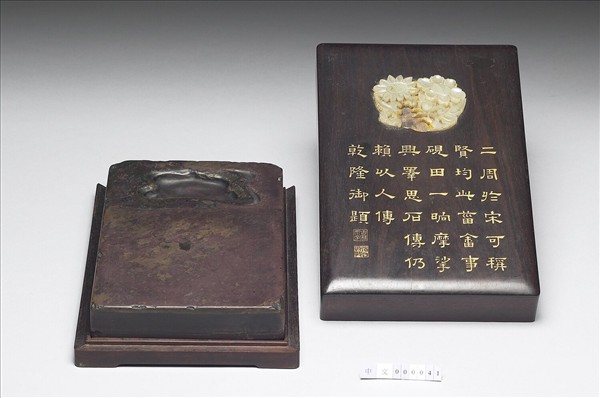 二周於宋可稱
賢均此菑畬事
硯田一晌摩挲
興羣思石傳仍
賴以人傳
乾隆御題
中文000041